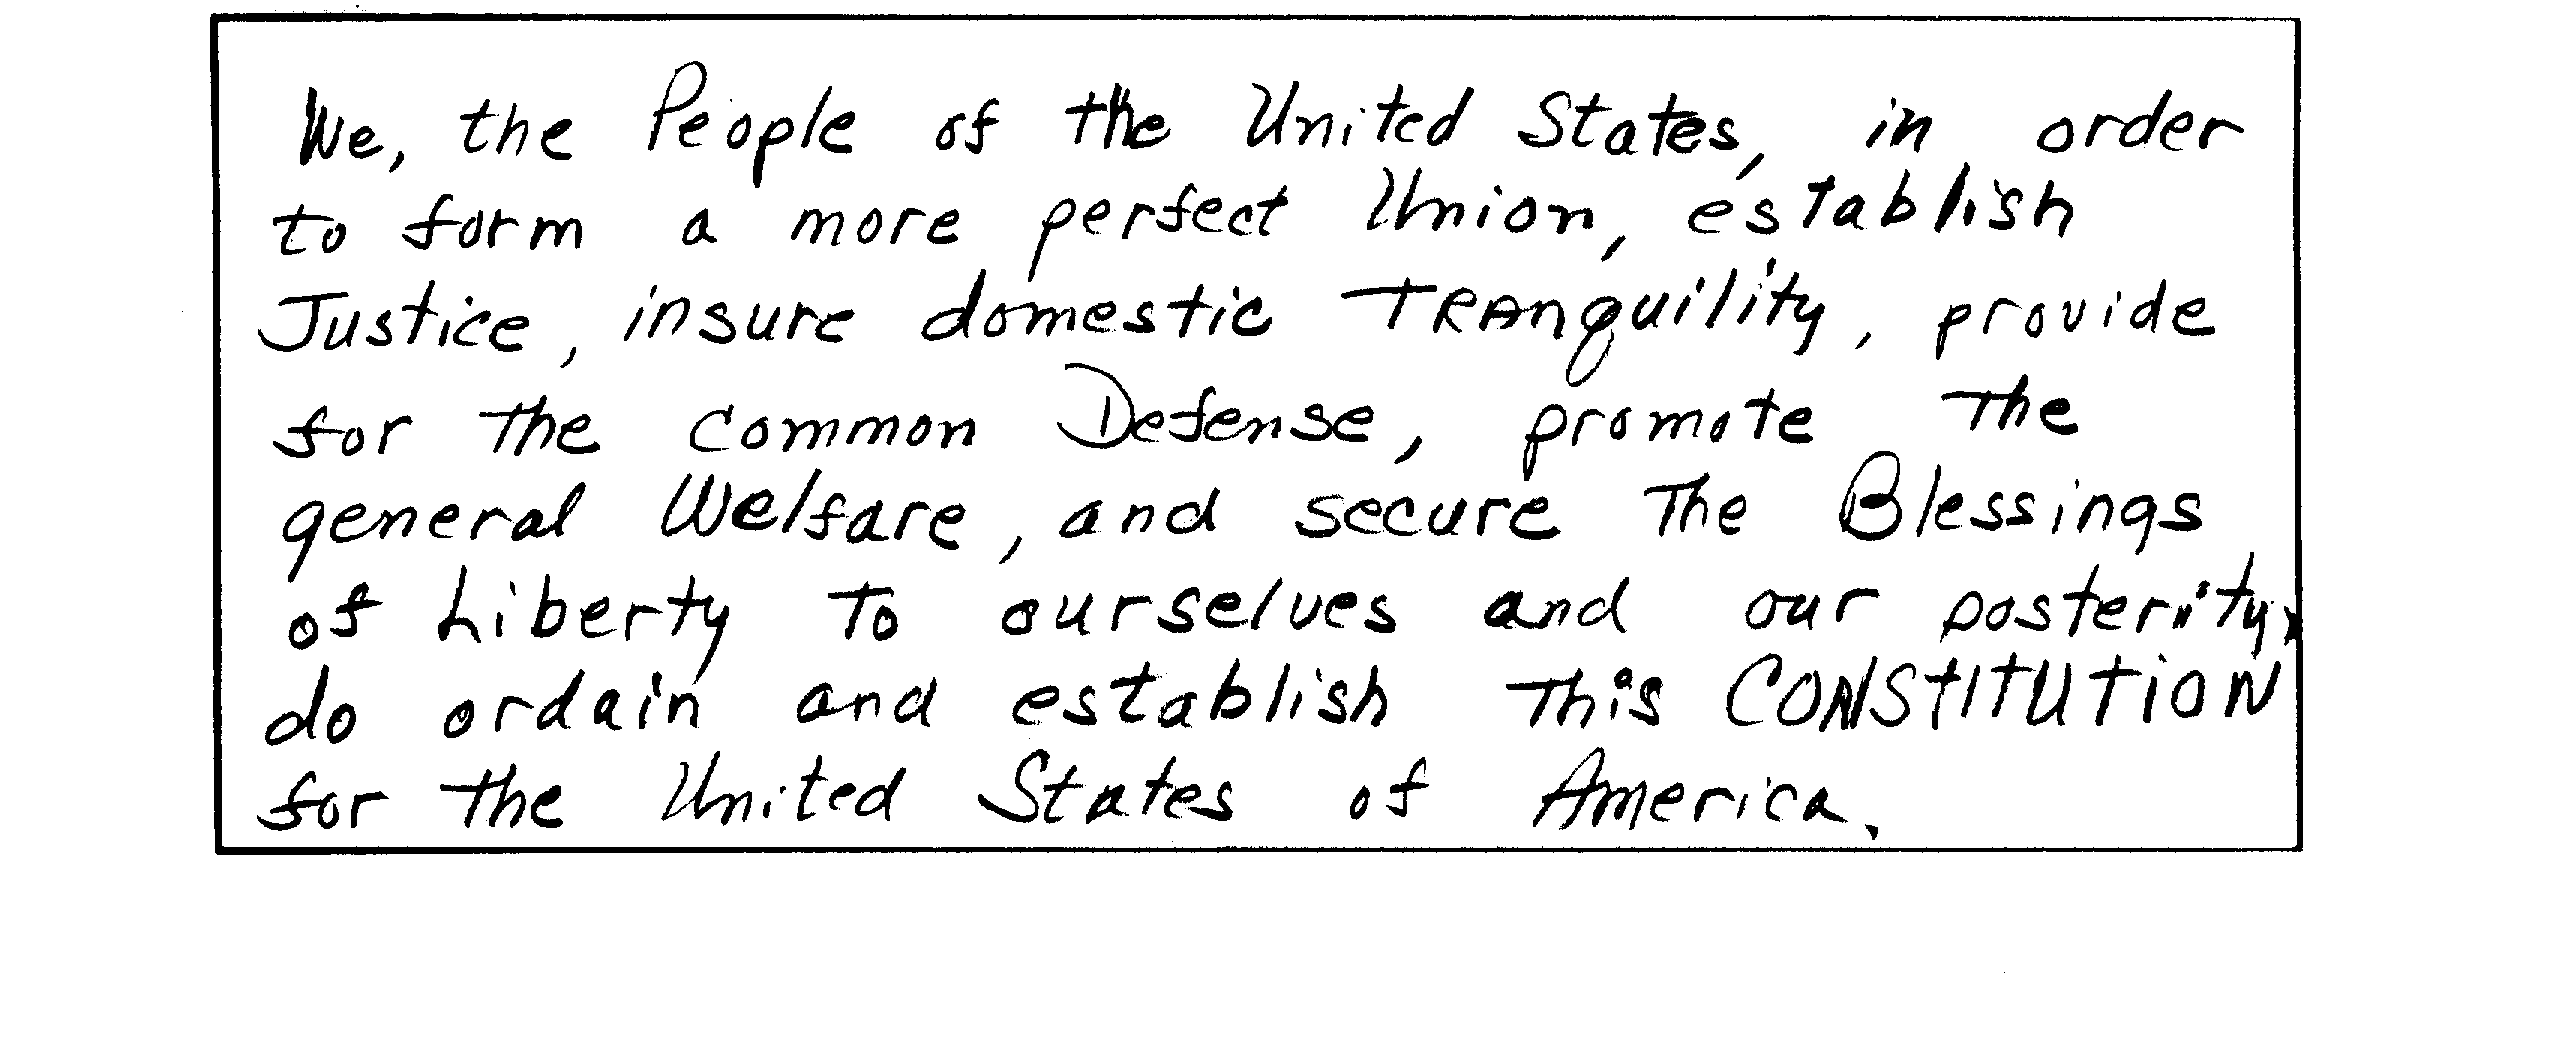 We, the People of the United States, in order
to form a more perfect Union, establish
Justice, insure domestic TRAnquility, provide
for the common Defense, promote the
general Welfare, and secure The Blessings
of Liberty To ourselves and our posterity,
do ordain and establish This CONSTITUTION
for the United States of America.